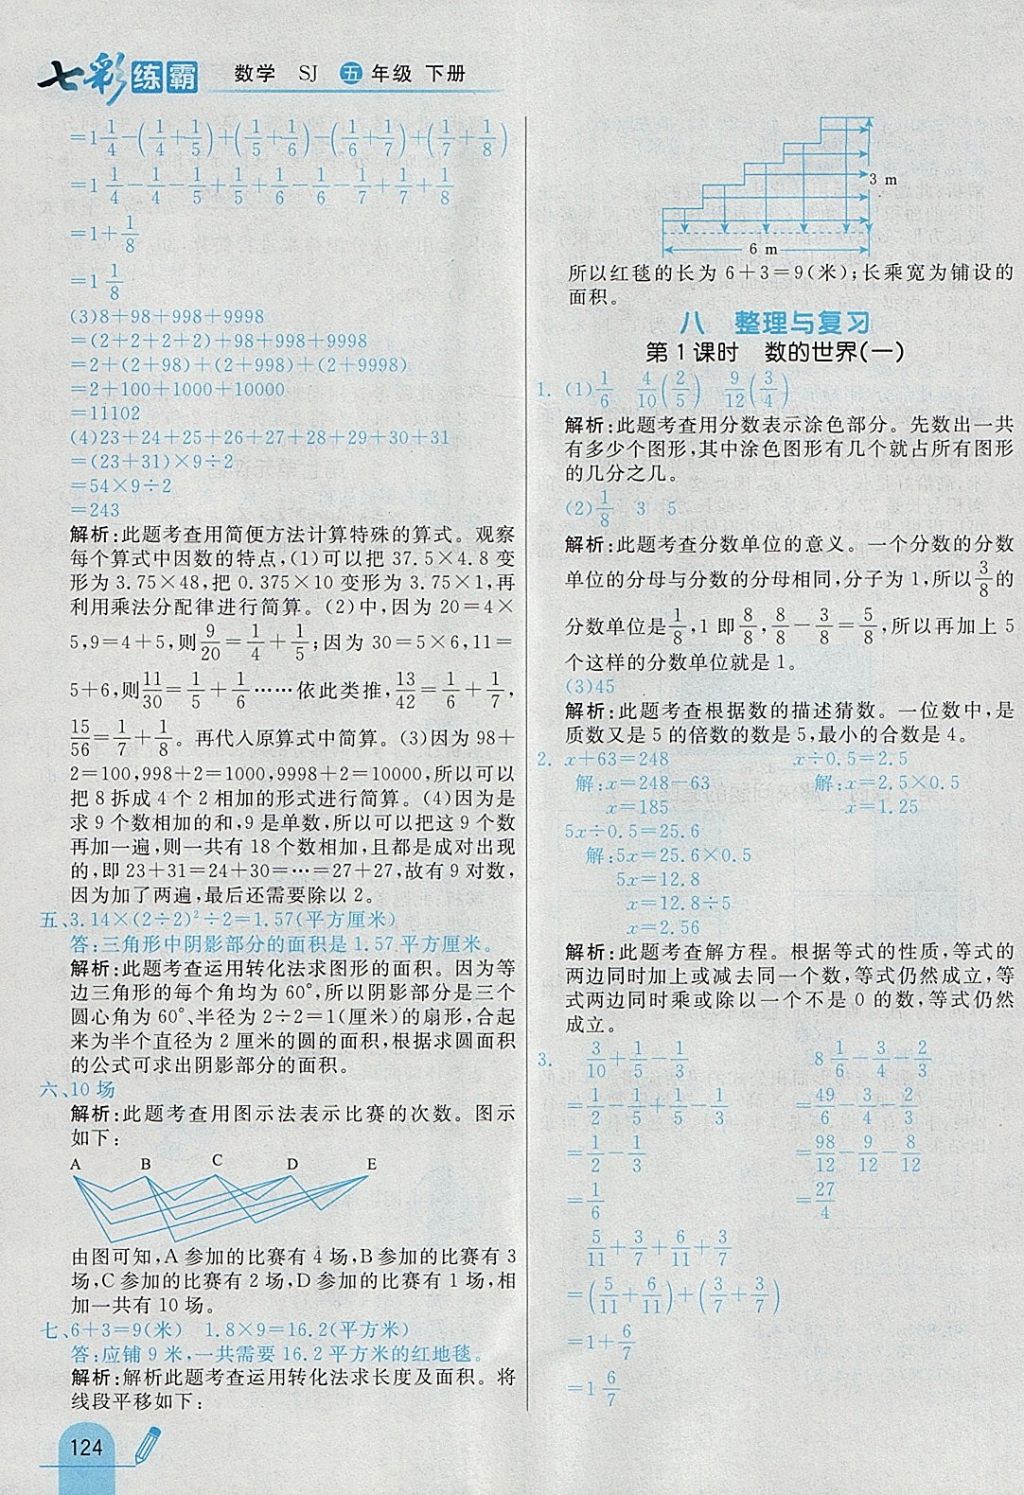 七彩练霸 数学 SJ 五年级 下册
=1 1/4-(1/4+1/5)+(1/5+1/6)-(1/6+1/7)+(1/7+1/8)
=1 1/4-1/4-1/5+1/5+1/6-1/6-1/7+1/7+1/8
=1+1/8
=1 1/8
(3)8+98+998+9998
=(2+2+2+2)+98+998+9998
=2+(2+98)+(2+998)+(2+9998)
=2+100+1000+10000
=11102
(4)23+24+25+26+27+28+29+30+31
=(23+31)×9÷2
=54×9÷2
=243
解析:此题考查用简便方法计算特殊的算式。观察
每个算式中因数的特点,(1)可以把 37.5×4.8 变
形为 3.75×48,把 0.375×10 变形为 3.75×1,再
利用乘法分配律进行简算。(2)中,因为 20=4×
5,9=4+5,则9/20=1/4+1/5;因为 30=5×6,11=
5+6,则11/30=1/5+1/6……依此类推,13/42=1/6+1/7,
15/56=1/7+1/8。再代入原算式中简算。(3)因为 98+
2=100,998+2=1000,9998+2=10000,所以可以
把 8 拆成 4 个 2 相加的形式进行简算。(4)因为是
求 9 个数相加的和,9 是单数,所以可以把这 9 个数
再加一遍,则一共有 18 个数相加,且都是成对出现
的,即 23+31=24+30=…=27+27,故有 9 对数,
因为加了两遍,最后还需要除以 2。
五、3.14×(2÷2)²÷2=1.57(平方厘米)
答:三角形中阴影部分的面积是 1.57 平方厘米。
解析:此题考查运用转化法求图形的面积。因为等
边三角形的每个角均为 60°,所以阴影部分是三个
圆心角为 60°、半径为 2÷2=1(厘米)的扇形,合起
来为半个直径为 2 厘米的圆的面积,根据求圆面积
的公式可求出阴影部分的面积。
六、10 场
解析:此题考查用图示法表示比赛的次数。图示
如下:
A B C D E
由图可知,A 参加的比赛有 4 场,B 参加的比赛有 3
场,C 参加的比赛有 2 场,D 参加的比赛有 1 场,相
加一共有 10 场。
七、6+3=9(米) 1.8×9=16.2(平方米)
答:应铺 9 米,一共需要 16.2 平方米的红地毯。
解析:解析此题考查运用转化法求长度及面积。将
线段平移如下:
124
3 m
6 m
所以红毯的长为 6+3=9(米);长乘宽为铺设的
面积。
八 整理与复习
第 1 课时 数的世界(一)
1. (1)1/6 4/10(2/5) 9/12(3/4)
解析:此题考查用分数表示涂色部分。先数出一共
有多少个图形,其中涂色图形有几个就占所有图形
的几分之几。
(2)1/8 3 5
解析:此题考查分数单位的意义。一个分数的分数
单位的分母与分数的分母相同,分子为 1,所以3/8的
分数单位是1/8,1 即8/8,8/8-3/8=5/8,所以再加上 5
个这样的分数单位就是 1。
(3)45
解析:此题考查根据数的描述猜数。一位数中,是
质数又是 5 的倍数的数是 5,最小的合数是 4。
2. x+63=248 x÷0.5=2.5
解:x=248-63 解:x=2.5×0.5
x=185 x=1.25
5x÷0.5=25.6
解:5x=25.6×0.5
5x=12.8
x=12.8÷5
x=2.56
解析:此题考查解方程。根据等式的性质,等式的
两边同时加上或减去同一个数,等式仍然成立,等
式两边同时乘或除以一个不是 0 的数,等式仍然
成立。
3. 3/10+1/5-1/3 8 1/6-3/4-2/3
=1/2-1/5+1/5-1/3 =49/6-3/4-2/3
=1/2-1/3 =98/12-9/12-8/12
=1/6 =27/4
5/11+3/7+6/11+3/7
=(5/11+6/11)+(3/7+3/7)
=1+6/7
=1 6/7